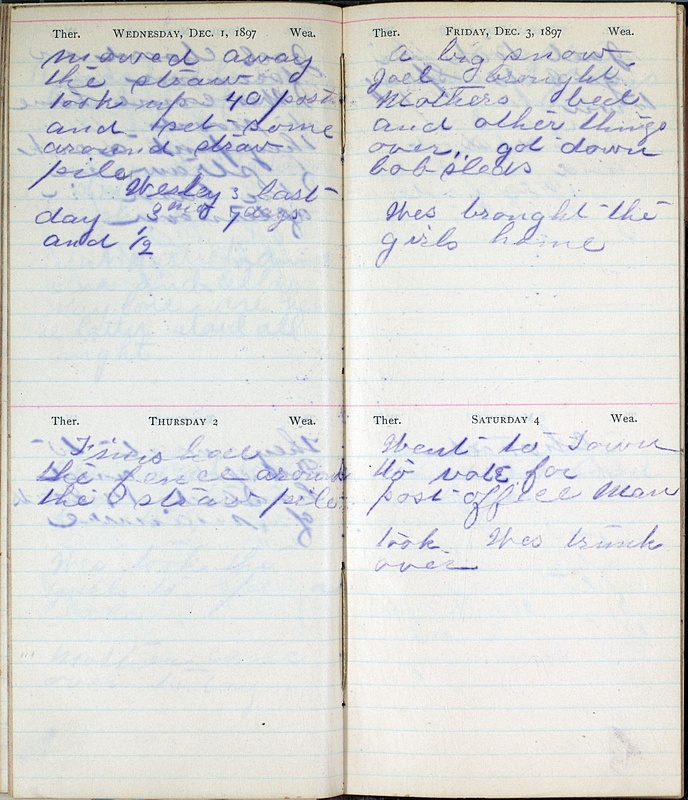 Ther. WEDNESDAY, DEC. 1, 1897 Wea.
mowed away
the straw
took up 40 posts
and set some
around straw
pile
Wesley s last
day 3 years
and 1/2
Ther. THURSDAY 2 Wea.
the fence around
the straw pile
Ther. FRIDAY, DEC. 3, 1897 Wea.
a big snow
Joel brought
Mothers bed
and other things
over, got down
bob sleds
Wes brought the
girls home
Ther. SATURDAY 4 Wea.
Went to Town
to vote for
post office man
took Wes trunk
over